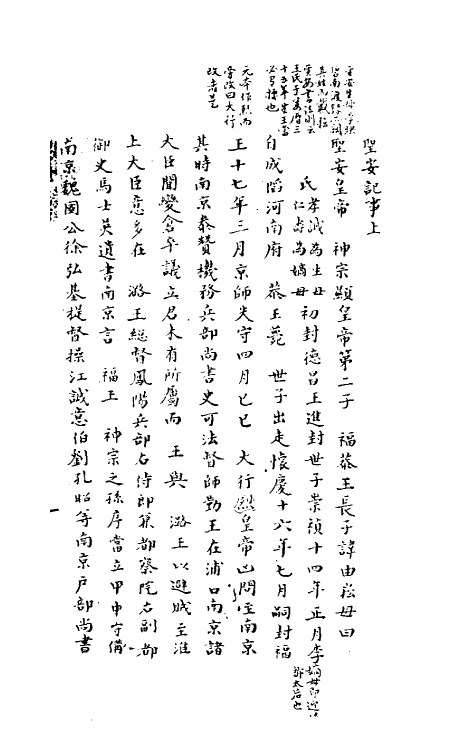 聖安記事上
聖安皇帝　神宗顯皇帝第二子　福恭王長子諱由崧母曰
氏　孝誠為生母　仁壽為嫡母　初封德昌王進封世子崇禎十四年正月李
自成陷河南府　恭王薨　世子出走懷慶十六年七月嗣封福
王十七年三月京師失守四月己巳　大行皇帝凶問至南京
其時南京參贊機務兵部尚書史可法督師勤王在浦口南京諸
大臣聞變倉卒議立君未有所屬而　王與　潞王以避賊至淮
上大臣意多在　潞王總督鳳陽兵部右侍郎兼都察院右副都
御史馬士英遺書南京言　福王　神宗之孫序當立甲申守備
南京魏國公徐弘基提督操江誠意伯劉孔昭等南京戶部尚書
元本作烈而
旁改曰大行
改者是
嫡母即
鄒太后也